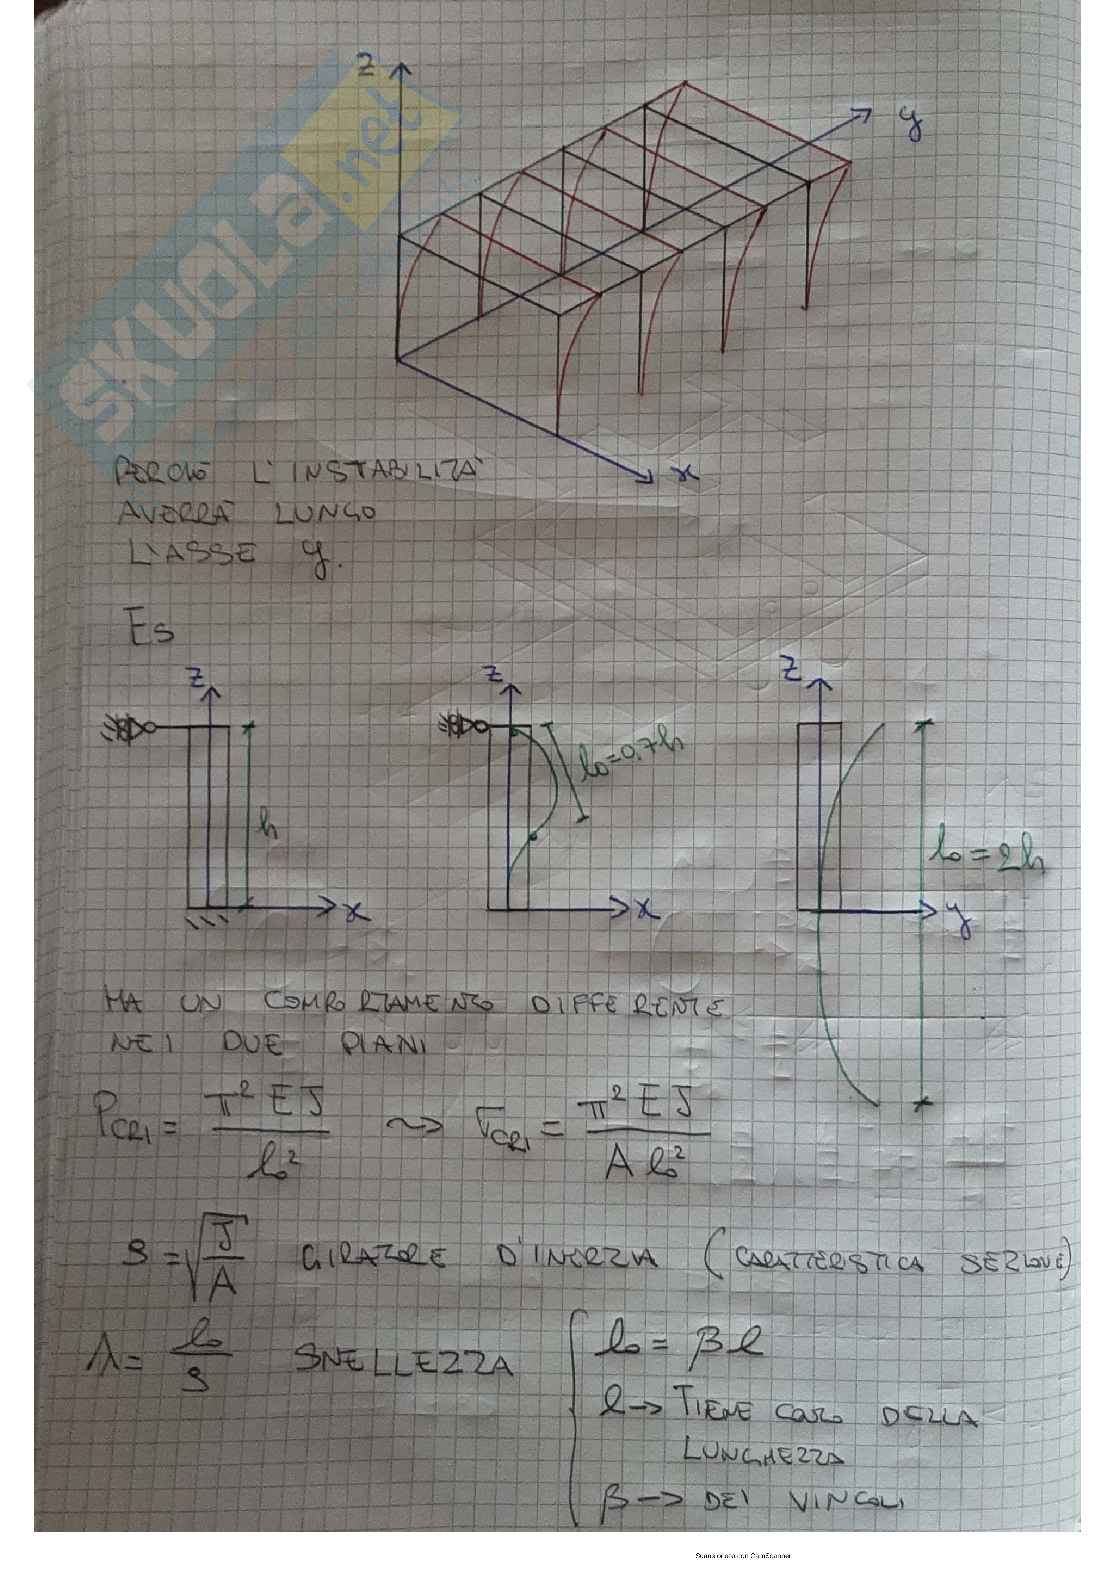 SKUOLA.net
z
y
x
PERCHÈ L'INSTABILITÀ
AVERRÀ LUNGO
L'ASSE y.
ES
z
h
x
z
l₀=0,7h
x
z
l₀=2h
y
HA UN COMPORTAMENTO DIFFERENTE
NEI DUE PIANI
P_CRI = π² E J / l₀² ~> σ_CRI = π² E J / A l₀²
ρ = √(J/A) GIRATORE D'INERZIA (CARATTERISTICA SEZIONE)
λ = l₀/ρ SNELLEZZA
l₀ = βl
l → TIENE CONTO DELLA
LUNGHEZZA
β → DEI VINCOLI